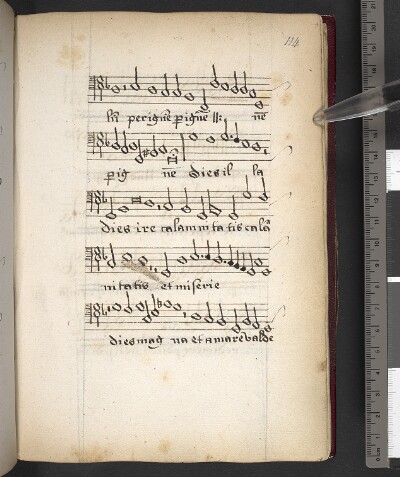 114
per ignē p ignē :||: nē
p ig nē dies il la
dies ire calammitatis cala
mitatis et miserie
dies mag na et amare valde